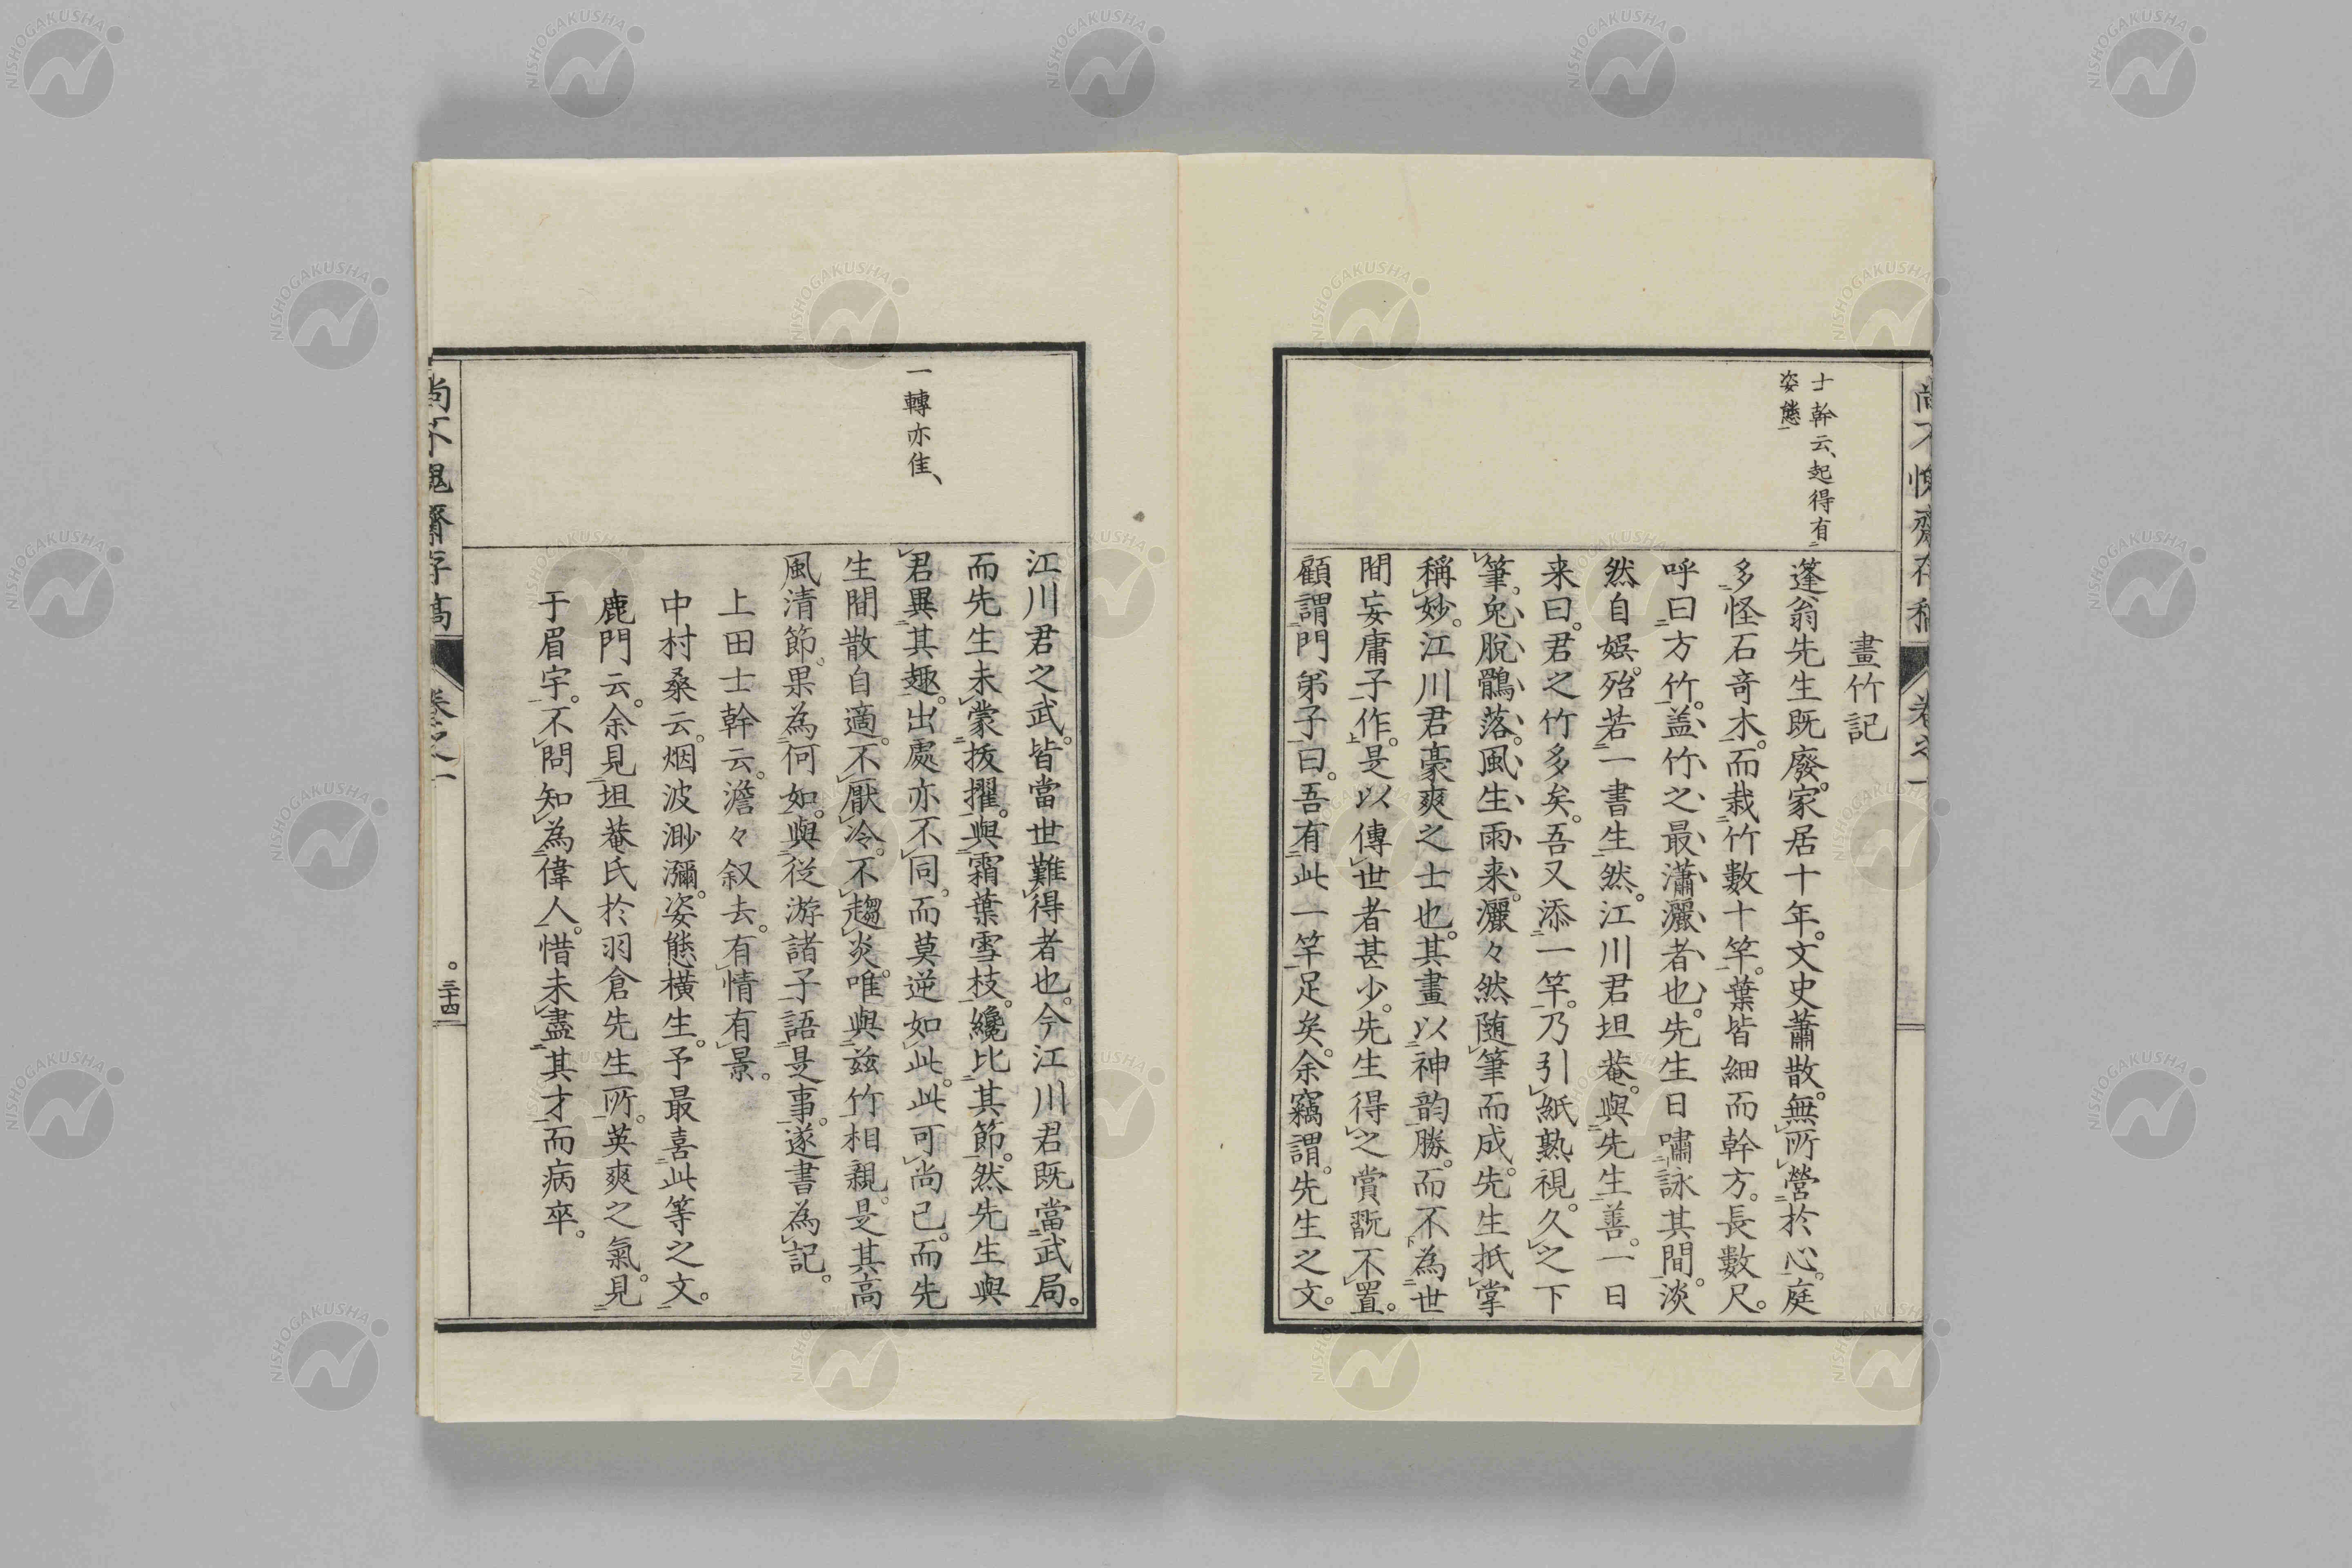 畫竹記
蓬翁先生既廢。家居十年。文史蕭散。無所營於心。庭
多怪石奇木。而栽竹數十竿。葉皆細而幹方。長數尺。
呼曰方竹。盖竹之最瀟灑者也。先生日嘯詠其間。淡
然自娛。殆若一書生然。江川君坦菴。與先生善。一日
来曰。君之竹多矣。吾又添一竿。乃引紙熟視。久之下
筆。兔脫鶻落。風生雨来。灑々然随筆而成。先生抵掌
稱妙。江川君豪爽之士也。其畫以神韵勝。而不為世
間妄庸子作。是以傳世者甚少。先生得之賞翫不置。
顧謂門弟子曰。吾有此一竿足矣。余竊謂。先生之文。
士幹云、起得有
姿態
卷之一
江川君之武。皆當世難得者也。今江川君既當武局。
而先生未蒙拔擢。與霜葉雪枝。纔比其節。然先生與
君異其趣。出處亦不同。而莫逆如此。此可尚已。而先
生間散自適。不厭冷。不趨炎。唯與玆竹相親。是其高
風清節。果為何如。與從游諸子語是事。遂書為記。
上田士幹云。澹々叙去。有情有景。
中村桑云。烟波渺瀰。姿態橫生。予最喜此等之文。
鹿門云。余見坦菴氏於羽倉先生所。英爽之氣。見
于眉宇。不問知為偉人。惜未盡其才而病卒。
一轉亦佳、
尚不愧齋存稿
卷之一
三十四
NISHOGAKUSHA